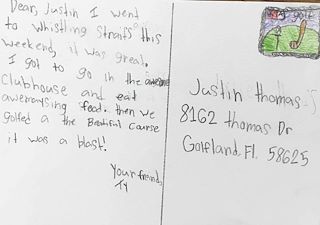 Dear, Justin I went
to whistling straits this
weekend, it was great.
I got to go in the
Clubhouse and eat
food. then we
golfed a the Beatiful course
it was a blast!
Your friend,
Ty
golf
Justin thomas
8162 thomas Dr
Golfland, Fl. 58625